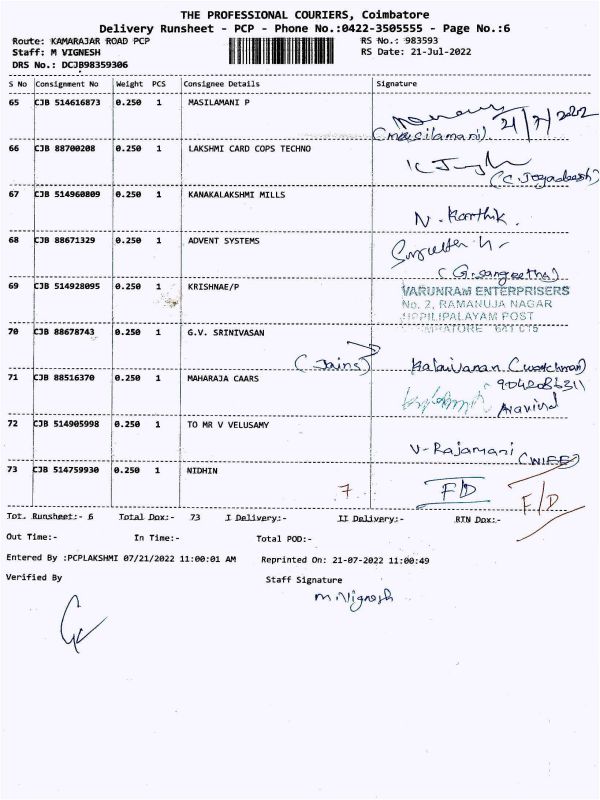 THE PROFESSIONAL COURIERS, Coimbatore
Delivery Runsheet - PCP - Phone No.:0422-3505555 - Page No.:6
Route: KAMARAJAR ROAD PCP RS No.: 983593
Staff: M VIGNESH RS Date: 21-Jul-2022
DRS No.: DCJB98359306
S No Consignment No Weight PCS Consignee Details Signature
65 CJB 514616873 0.250 1 MASILAMANI P
(masilamani). 21/7/2022
66 CJB 88700208 0.250 1 LAKSHMI CARD COPS TECHNO
(C. Jegadeesh)
67 CJB 514960809 0.250 1 KANAKALAKSHMI MILLS
N. Karthik.
68 CJB 88671329 0.250 1 ADVENT SYSTEMS
(G. Sangeetha)
69 CJB 514928095 0.250 1 KRISHNAE/P VARUNRAM ENTERPRISERS
No. 2, RAMANUJA NAGAR
UPPILIPALAYAM POST
70 CJB 88678743 0.250 1 G.V. SRINIVASAN
(Jains) Kalaivanan (watchman)
9042086311
71 CJB 88516370 0.250 1 MAHARAJA CAARS
Aravind
72 CJB 514905998 0.250 1 TO MR V VELUSAMY
V-Rajamani (WIFE)
73 CJB 514759930 0.250 1 NIDHIN
7 F/D F/D
Tot. Runsheet:- 6 Total Dox:- 73 I Delivery:- II Delivery:- RTN Dox:-
Out Time:- In Time:- Total POD:-
Entered By :PCPLAKSHMI 07/21/2022 11:00:01 AM Reprinted On: 21-07-2022 11:00:49
Verified By Staff Signature
M.Vignesh